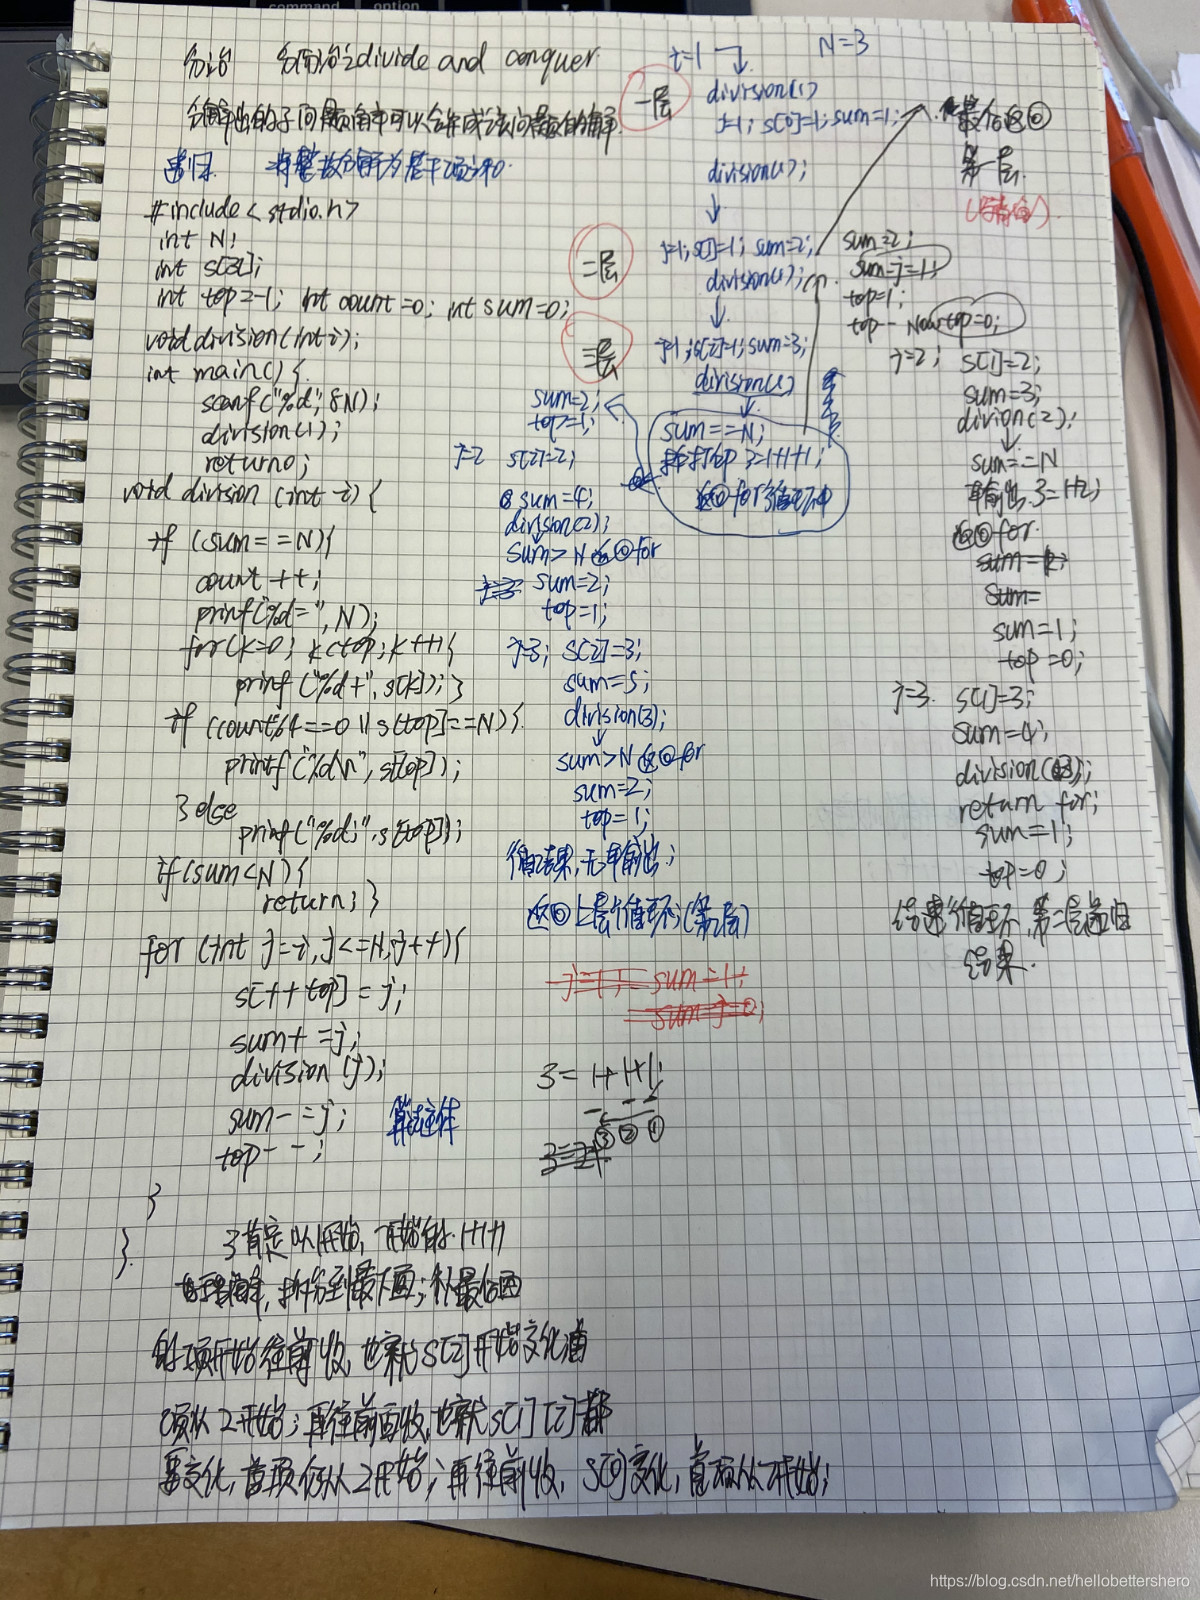 command option
分治 分而治之 divide and conquer.
分解出的子问题的解可以合并成该问题的解.
递归. 将整数分解为若干项之和.
#include<stdio.h>
int N;
int top=-1; int count=0; int sum=0;
void division(int i);
int main() {
scanf("%d", &N);
division(1);
return 0;
void division (int i) {
if (sum==N){
count ++;
printf("%d=", N);
for(k=0; k<top; k++){
printf("%d+", s[k]); }
if (count%4==0 || s[top]==N){
printf("%d\n", s[top]);
} else
printf("%d;", s[top]);
if(sum<N) {
return; }
for (int j=i; j<=N; j++){
s[++top] = j;
sum+=j;
division(j);
sum-=j; 算法主体
top--;
}
}
N=3
i=1
一层
division(1)
j=1; s[0]=1; sum=1;
division(1);
二层
j=1; s[1]=1; sum=2;
division(1);
三层
j=1; s[2]=1; sum=3;
division(1)
sum==N;
3=1+1+1;
返回for循环中
sum=2;
top=1;
j=2 s[2]=2;
sum=4;
division(2);
sum>N 返回for
j=3 sum=2;
top=1;
j=3; s[2]=3;
sum=5;
division(3);
sum>N 返回for
sum=2;
top=1;
循环结束,无输出;
返回上层循环;(第2层)
j=1; sum=1;
3=1+1+1;
③ ② ①
最后返回
第一层.
sum=2;
sum-j=1;
top=1;
top-- Now top=0;
j=2; s[1]=2;
sum=3;
divion(2);
sum==N
输出.3=1+2;
返回for.
sum=
sum=1;
top=0;
j=3. s[1]=3;
sum=4;
division(3);
return for;
sum=1;
top=0;
结束循环,第二层递归
结束.
3 首先从1开始,开始的.1+1+1
拆分到最后面;从最后面
的项开始往前收,也就s[2]开始变化
项从2开始;再往前面收,也就s[1] [2]都
要变化,首项仍从2开始;再往前收, s[0]变化,首项从2开始;
https://blog.csdn.net/hellobettershero